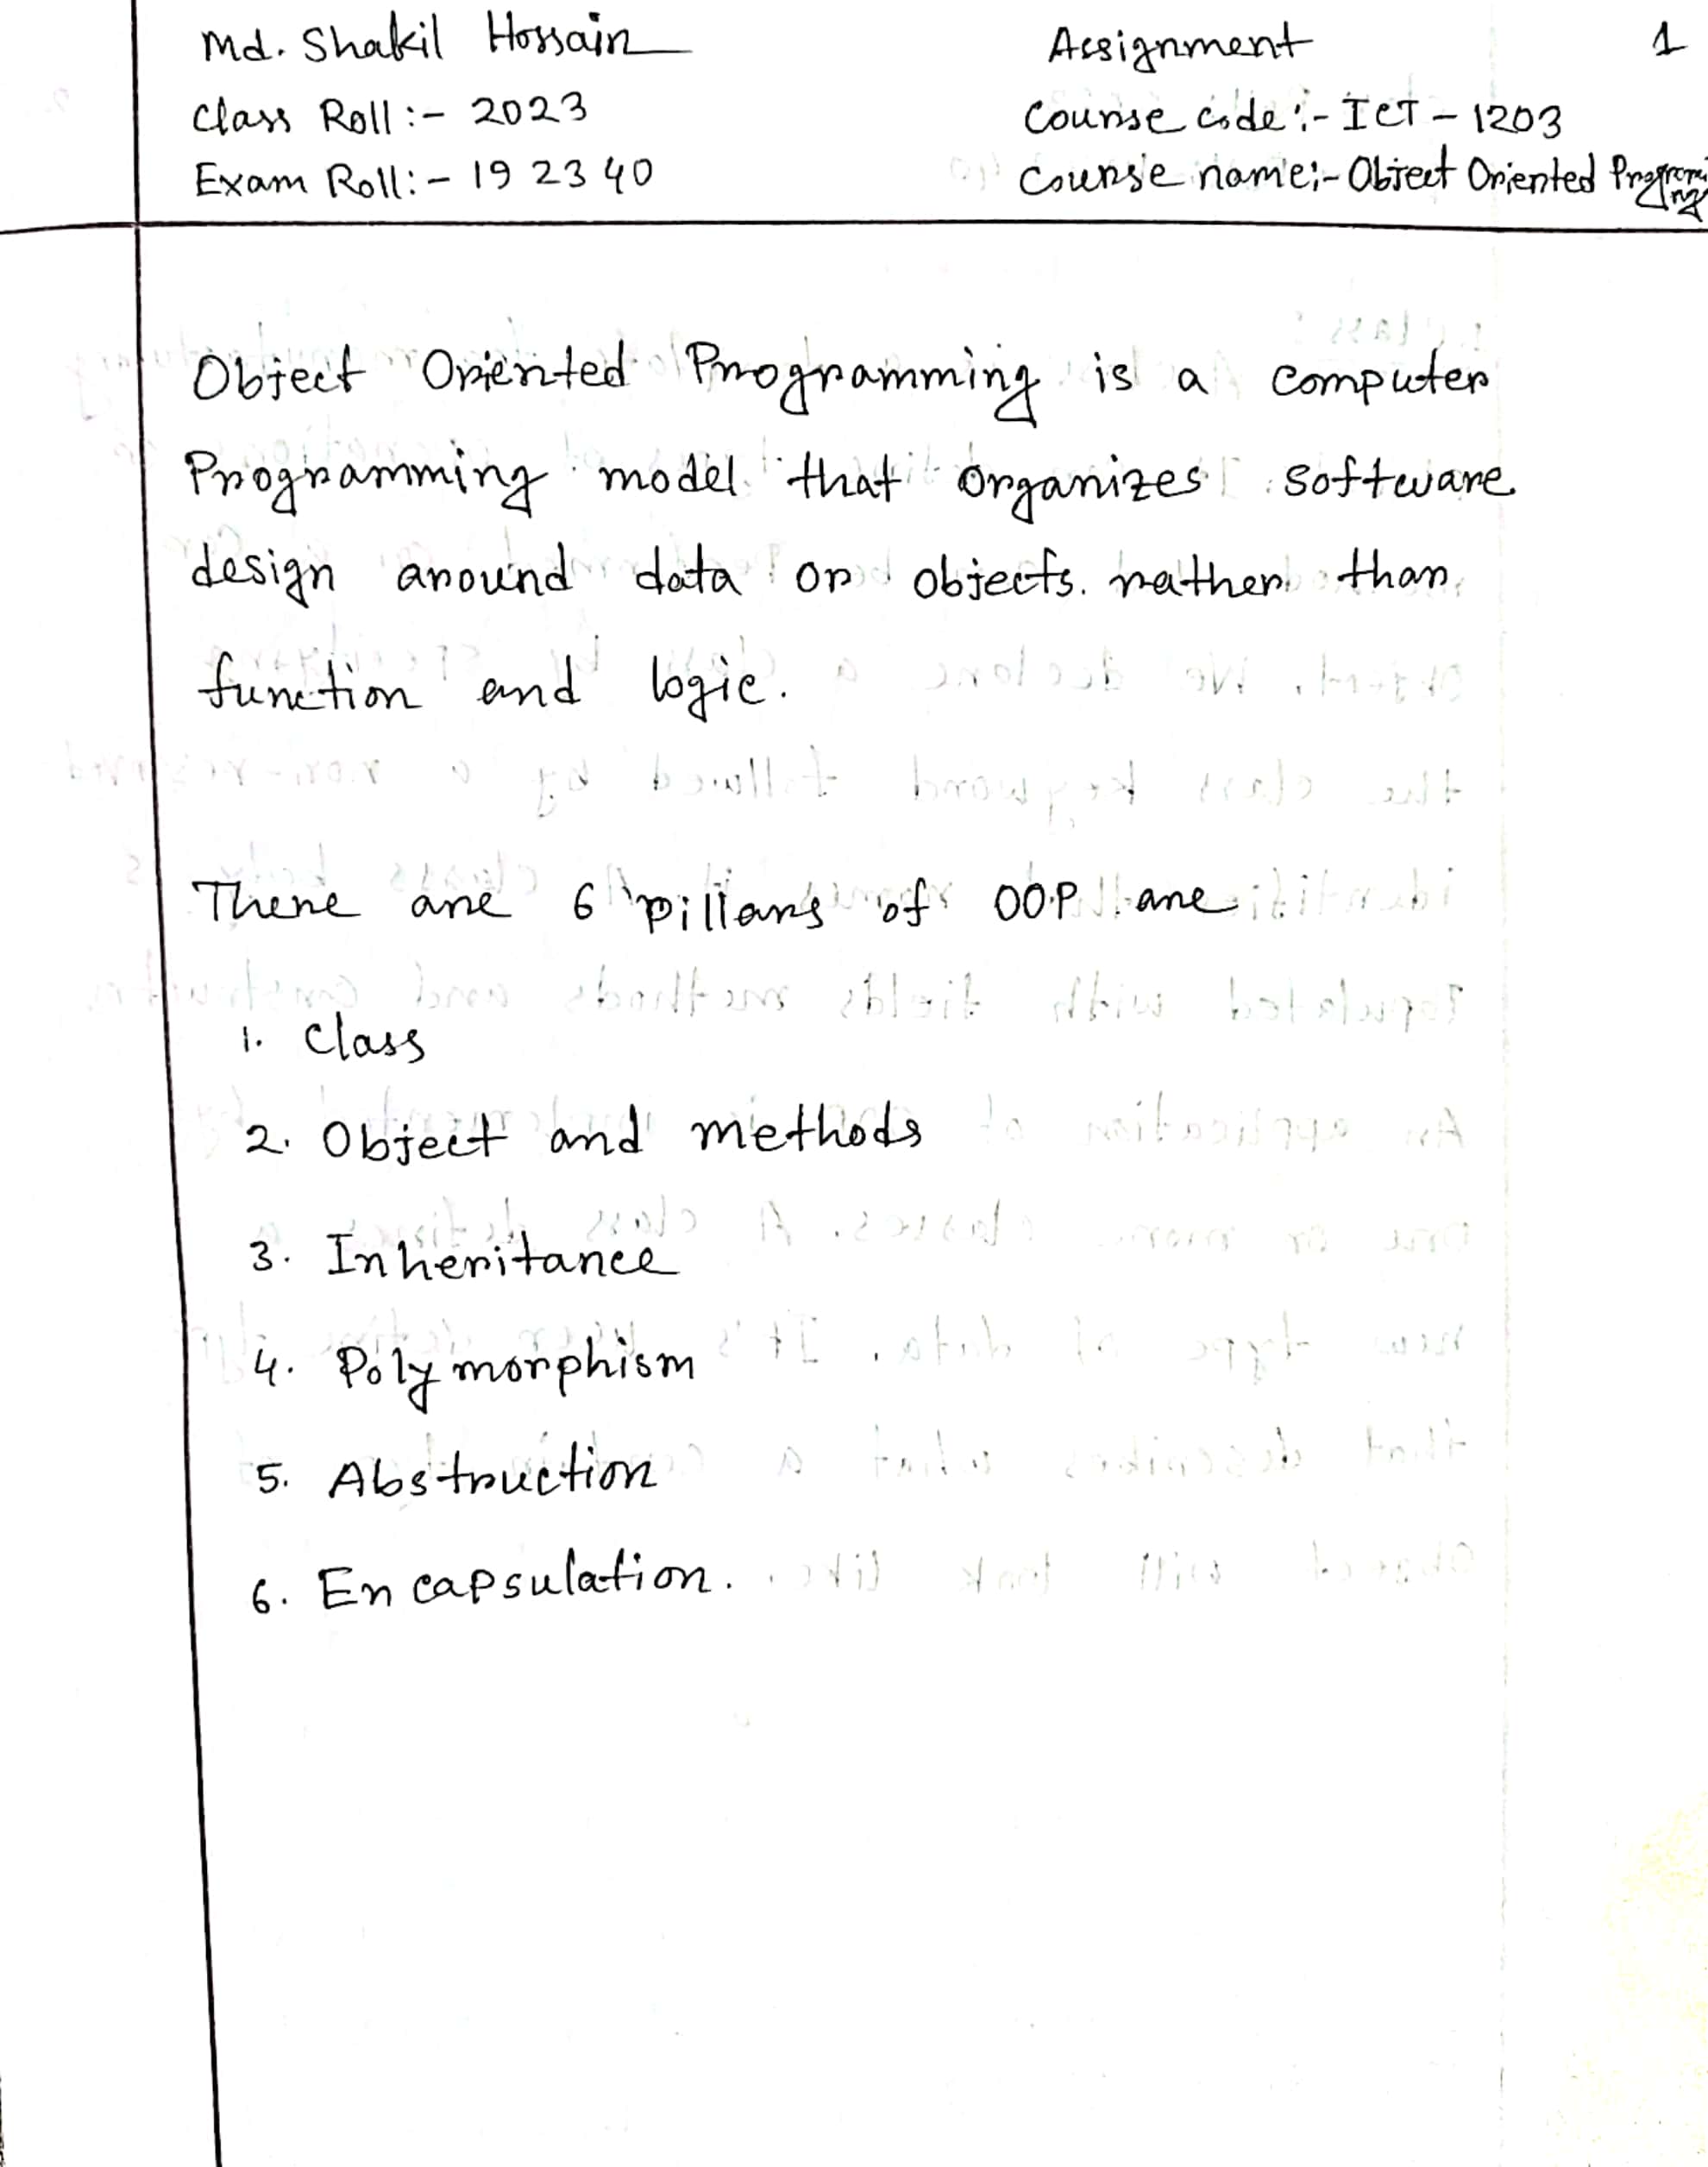 Md. Shakil Hossain
Class Roll :- 2023
Exam Roll :- 192340
Assignment
1
Course code :- ICT - 1203
Course name :- Object Oriented Programming
Object Oriented Programming is a computer
Programming model that organizes software
design around data or objects. rather than
function and logic.
There are 6 pillars of OOP are
1. Class
2. Object and methods
3. Inheritance
4. Polymorphism
5. Abstruction
6. Encapsulation.